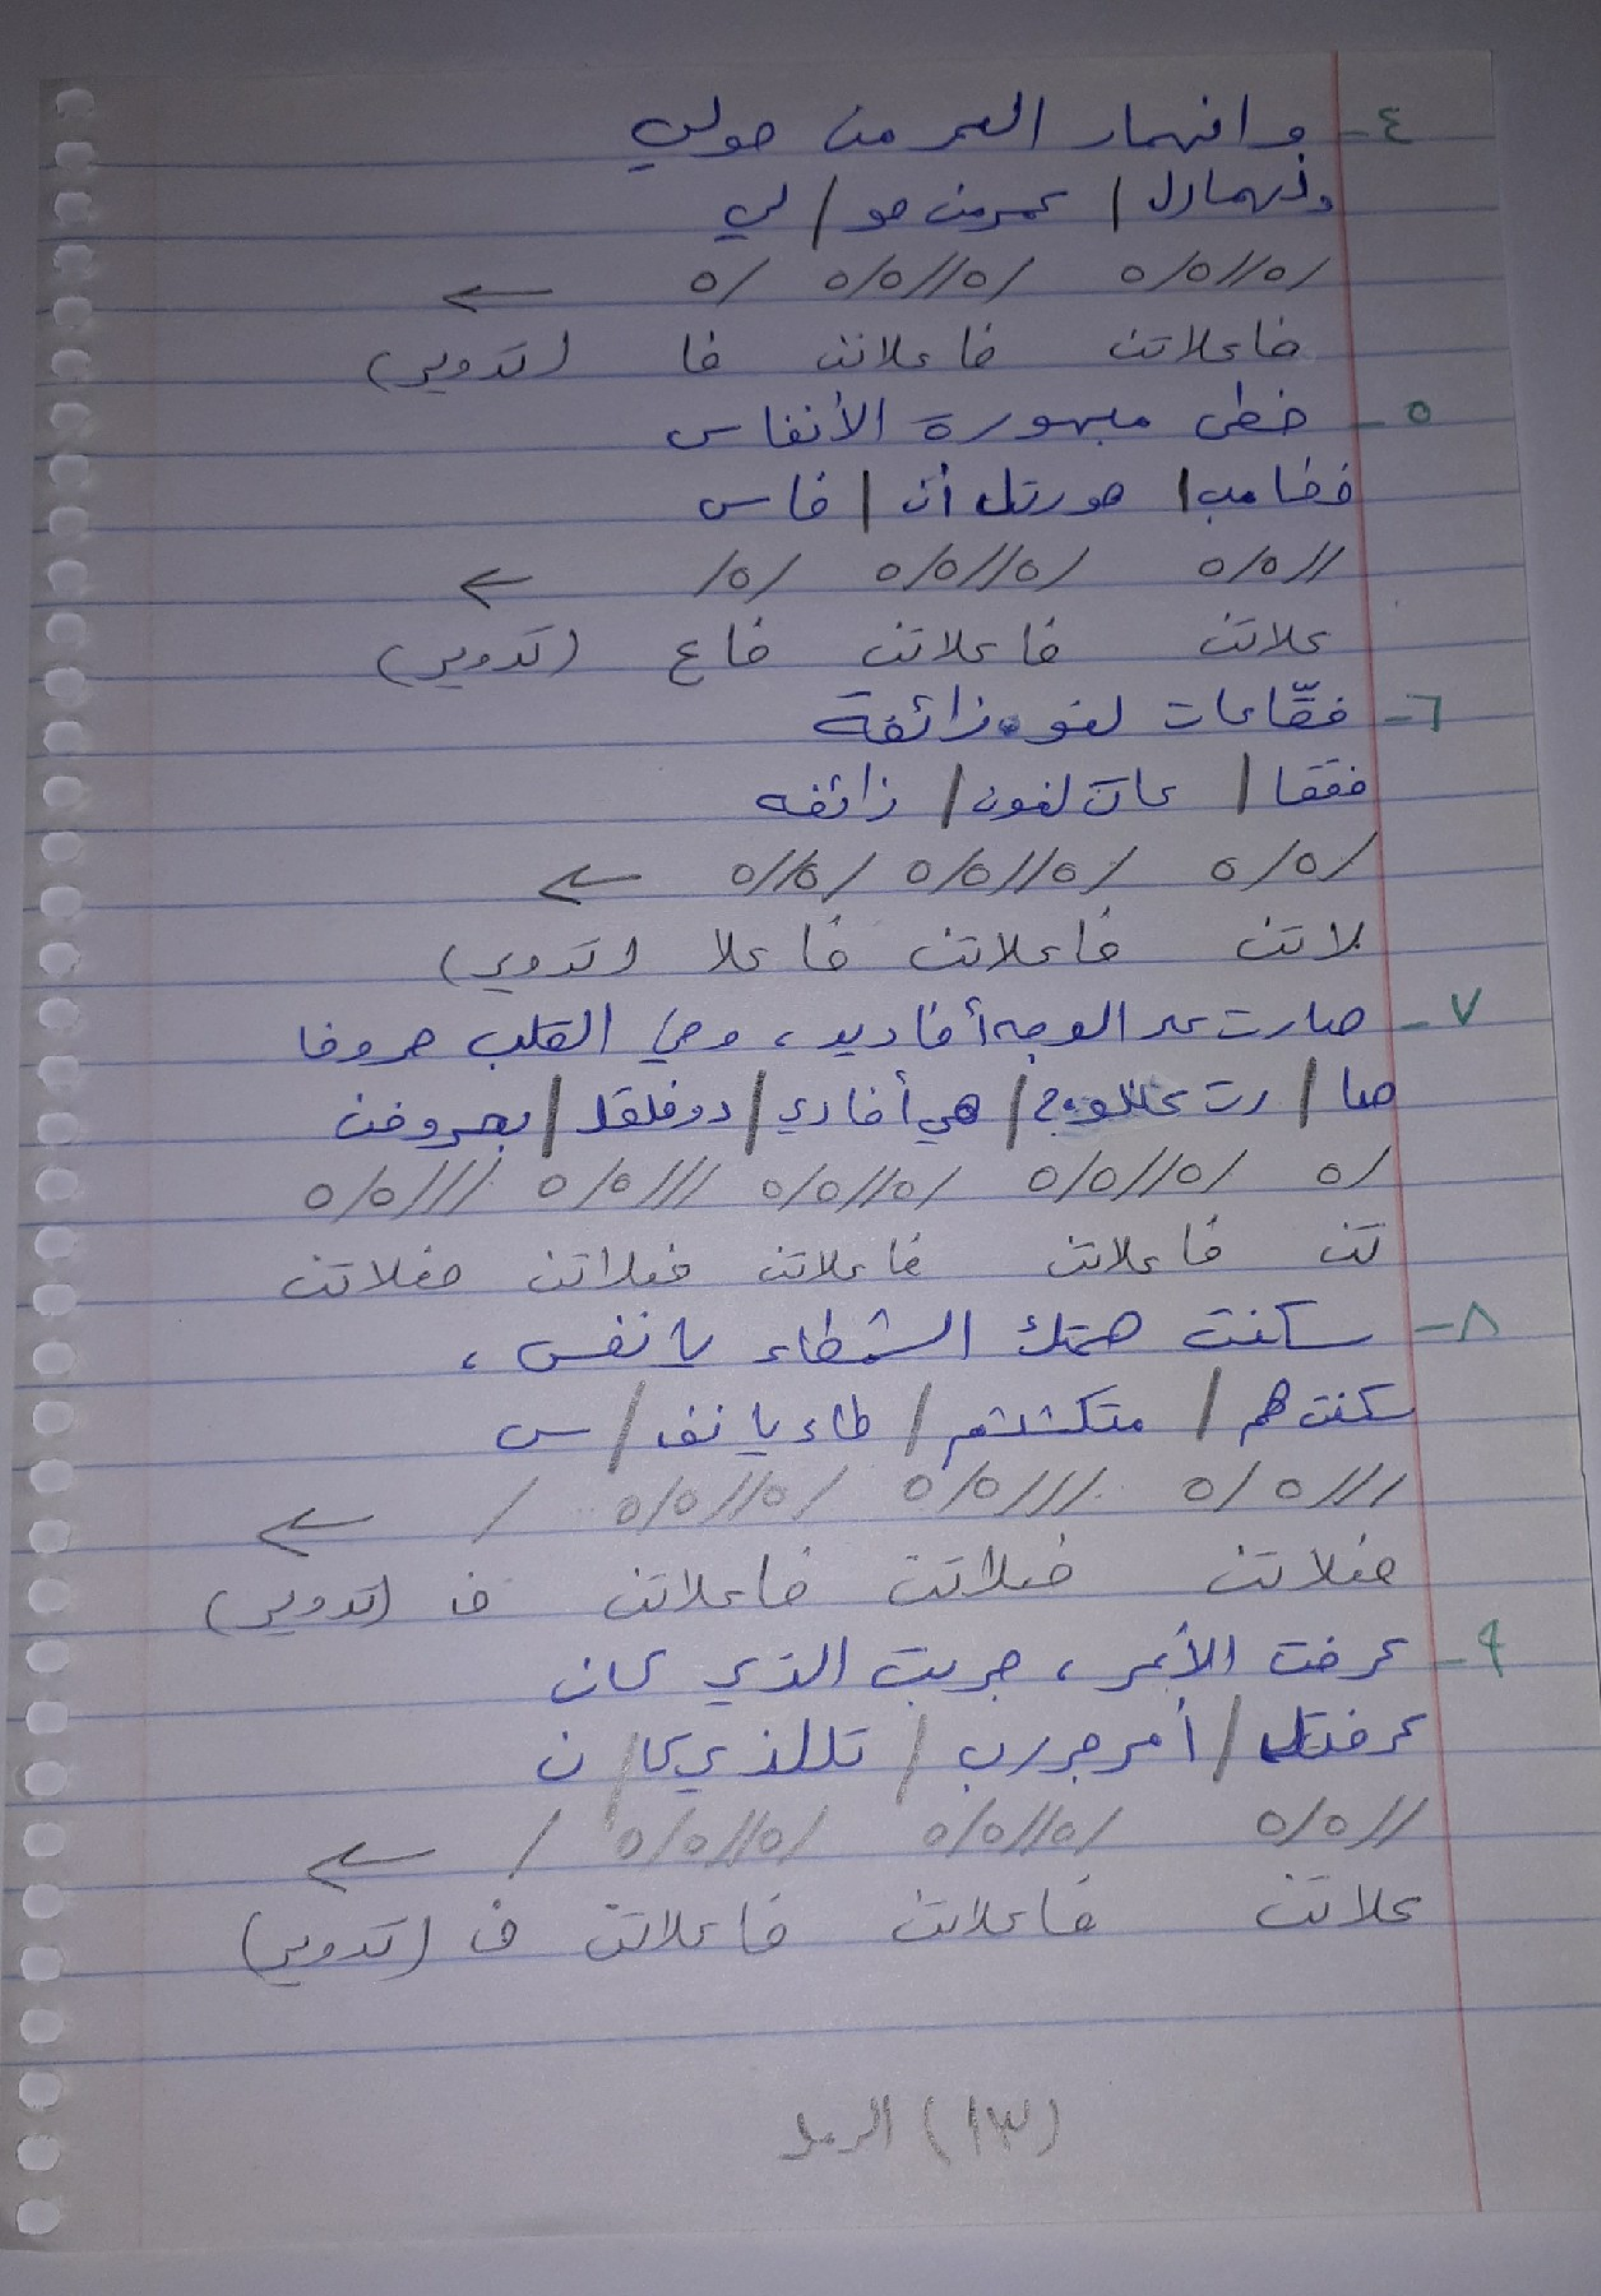 ٤- وانهمار العمر من حولي
ونهمارل / عمر من حو / لي
/٥//٥/٥ /٥//٥/٥ /٥ ←
فاعلاتن فاعلاتن فا (تدوير)
٥- خطى مبهورة الأنفاس
خطا مب / هورتل أن / فاس
//٥/٥ /٥//٥/٥ /٥/ ←
علاتن فاعلاتن فاع (تدوير)
٦- فقّاعات لغو زائفة
فققا / عات لغون / زائفه
/٥/٥ /٥//٥/٥ /٥//٥ ←
لاتن فاعلاتن فاعلا (تدوير)
٧- صارت على الوجه أخاديد، وفي القلب حروفا
صا / رت عللوج / هي أخادي / دوفلقل / بحروفن
/٥ /٥//٥/٥ /٥//٥/٥ ///٥/٥ ///٥/٥
تن فاعلاتن فاعلاتن فعلاتن فعلاتن
٨- سكنت همتك الشمطاء يا نفس،
سكنت هم / متكششم / طاء يا نف / س
///٥/٥ ///٥/٥ /٥//٥/٥ / ←
فعلاتن فعلاتن فاعلاتن ف (تدوير)
٩- عرفت الأمر، جربت الذي كان
عرفتل / أمر جررب / تللذي كا / ن
//٥/٥ /٥//٥/٥ /٥//٥/٥ / ←
علاتن فاعلاتن فاعلاتن ف (تدوير)
(١٣) الرمل